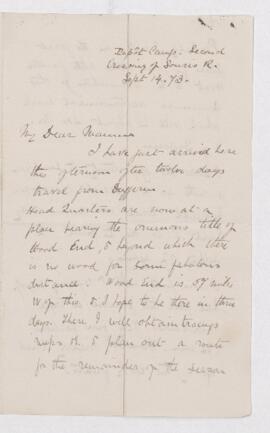 Depôt Camp. Second
Crossing of Souris R.
Sept 14. 73.
My Dear Mamma
I have just arrived here
this afternoon after twelve days
travel from Dufferin.
Head Quarters are now at a
place bearing the ominous title of
Wood End, & beyond which there
is no wood for some fabulous
distance. Wood End is 37 miles
W of this & I hope to be there in three
days. There I will obtain
maps & & plan out a route
for the remainder of the season